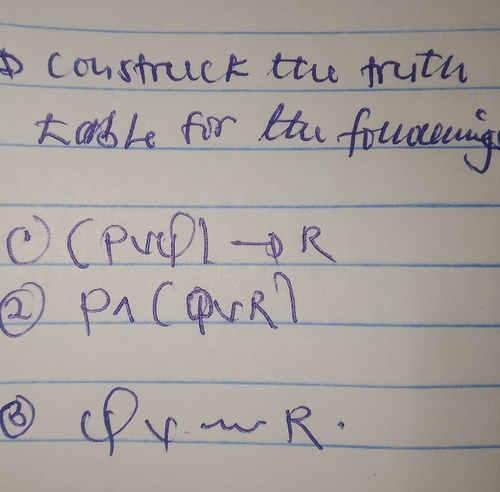 ① construck the truth
table for the following
① (PVQ) → R
② P∧(QVR)
③ Q V ~ R.